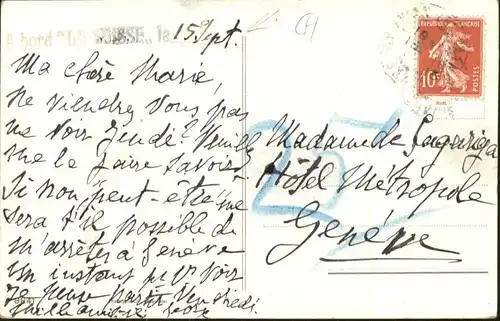 à bord "LA SUISSE", le 15 Sept.
Ma chère Marie,
Ne viendrez vous pas
me voir Jeudi? Veuillez
me le faire savoir
Si non peut-être me
Sera t'il possible de
m'arrêter à Genève
un instant pr vs voir
Je pense partir Vendredi
Mille amitiés
RÉPUBLIQUE FRANÇAISE
10c
Madame de
Hôtel Métropole
Genève